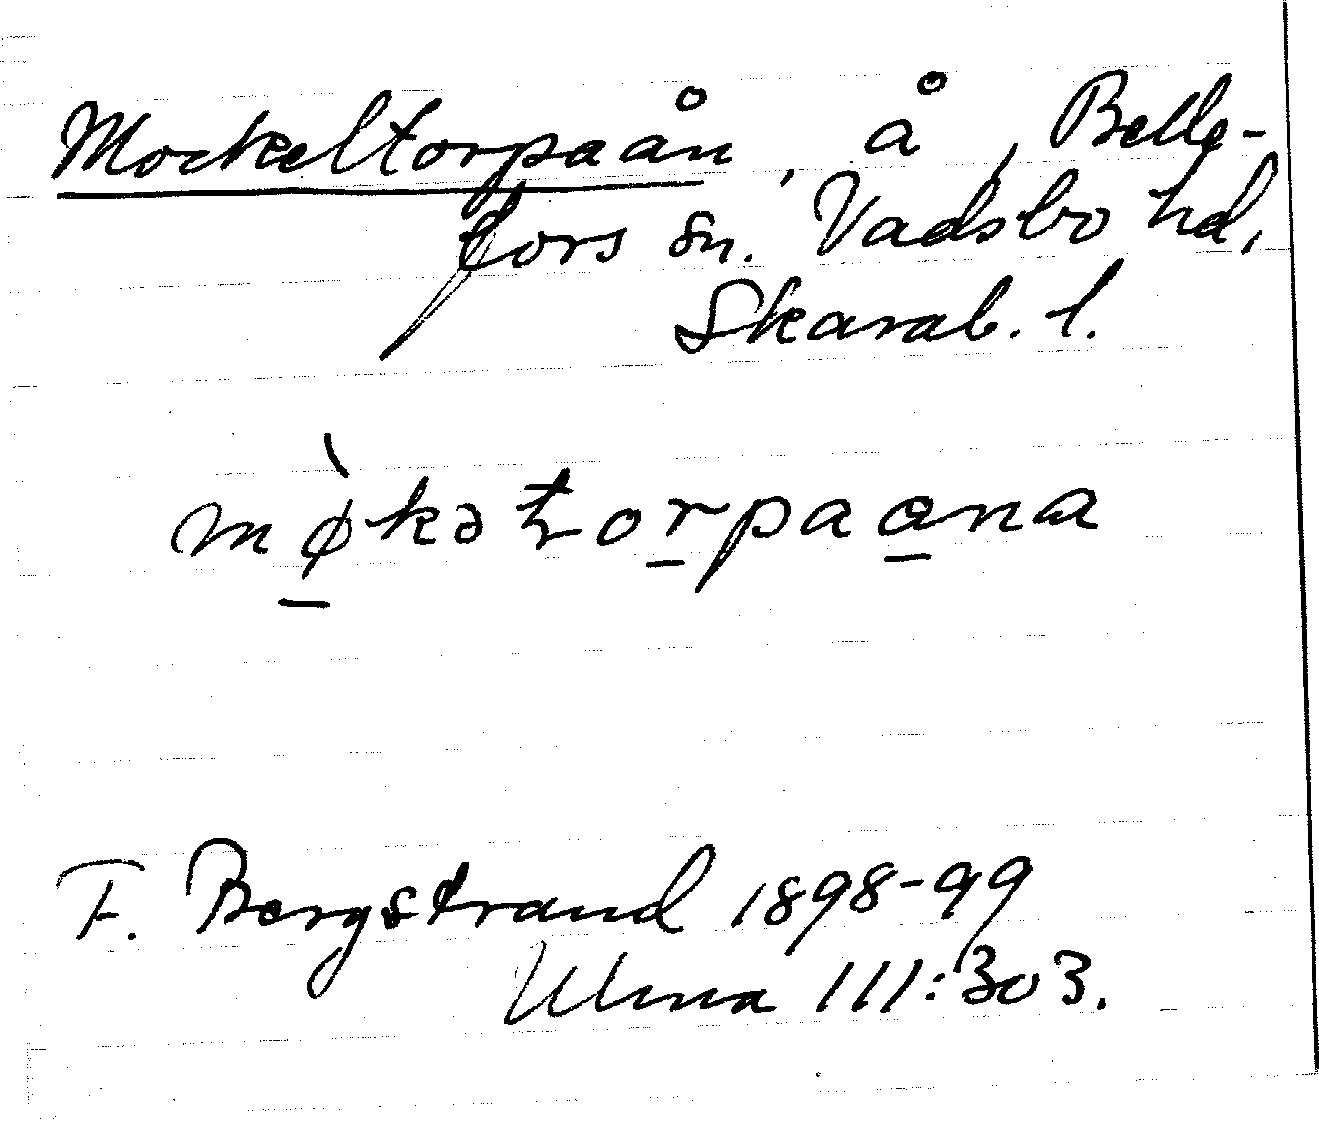 Mockeltorpaån, å, Belle-
fors sn. Vadsbo hd,
Skarab. l.
mø̀kəƫorpaana
F. Bergstrand 1898-99
Ulma 111:303.